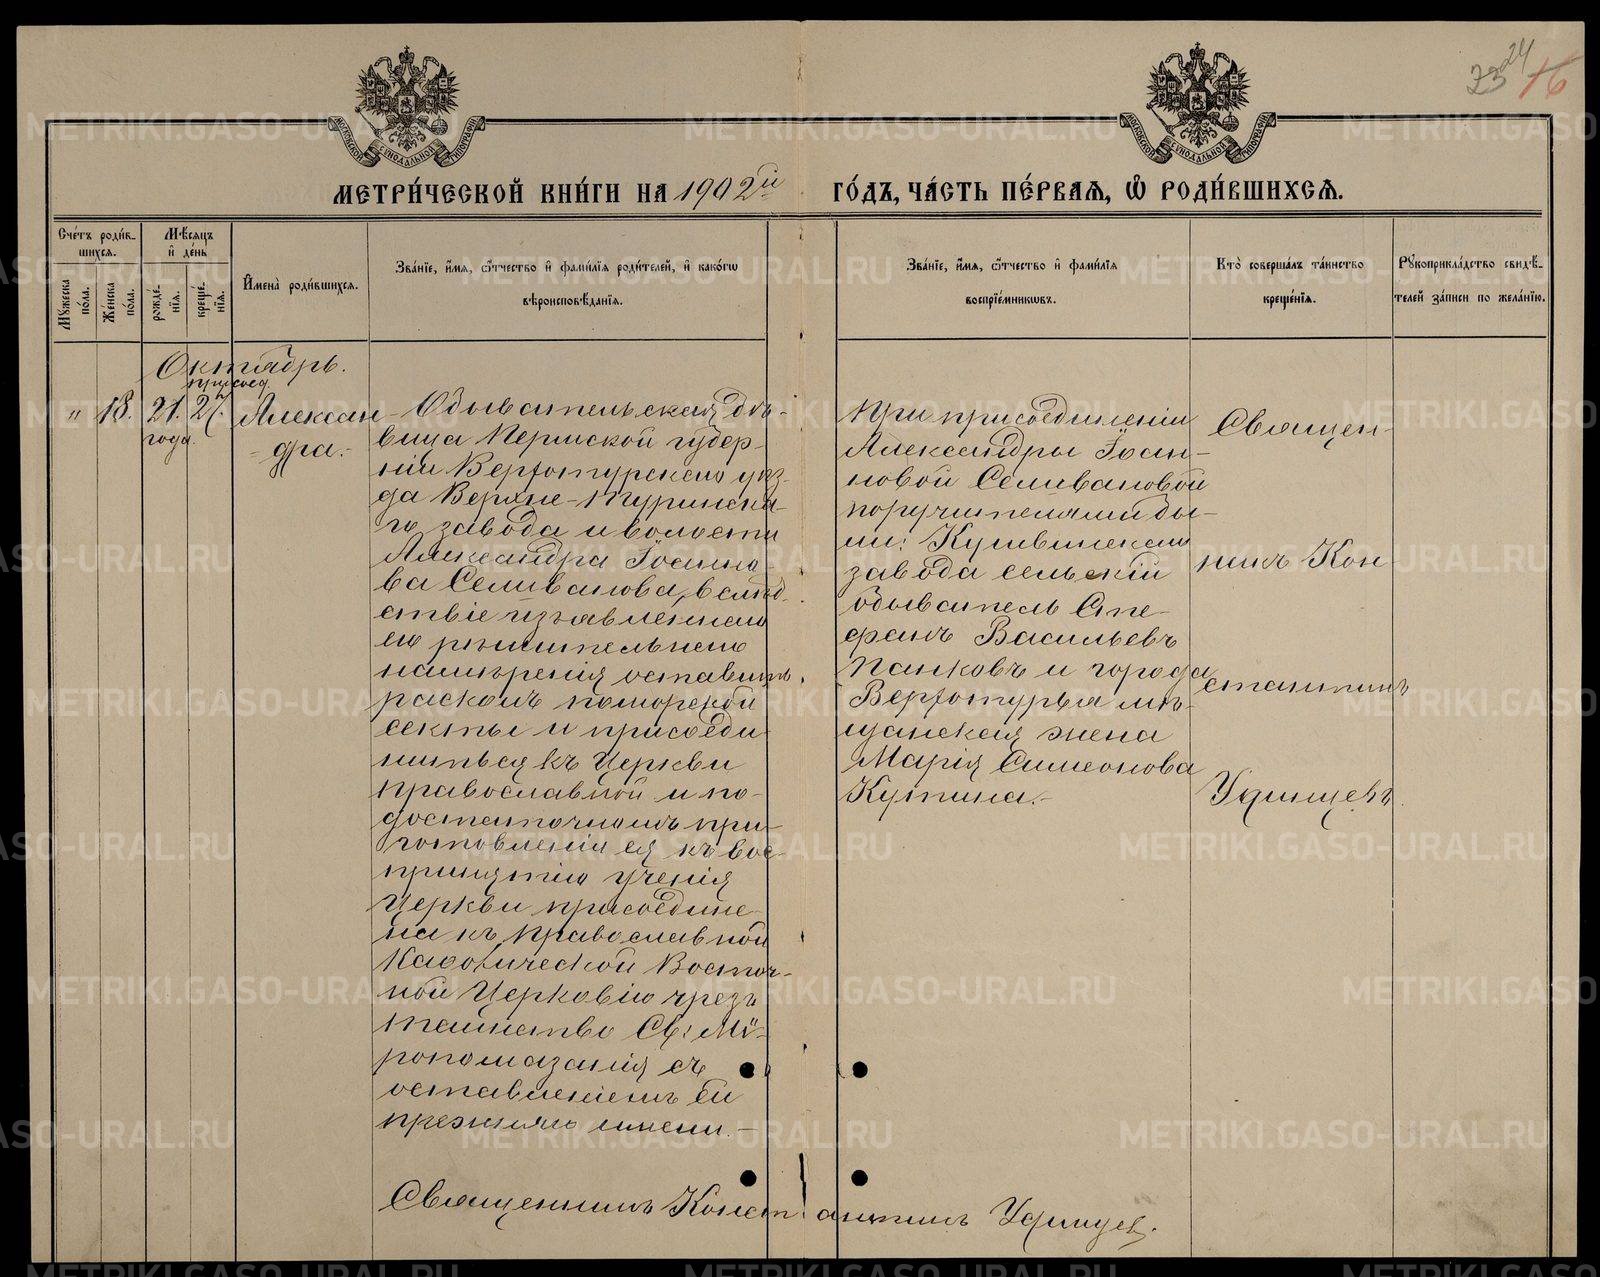 24
23 16
МОСКОВСКОЙ СУНОДАЛЬНОЙ ТИПОГРАФІИ
МОСКОВСКОЙ СУНОДАЛЬНОЙ ТИПОГРАФІИ
МЕТРИ́ЧЕСКОЙ КНИ́ГИ НА 1902й ГО́ДЪ, ЧА́СТЬ ПЕ́РВАЯ, Ѽ РОДИ́ВШИХСЯ.
Сче́тъ роди́в-
шихся.
Мѣ́сяцъ
и҆ де́нь
Мꙋ́жеска по́ла.
Же́нска по́ла.
рожде́-нїя.
креще́-нїя.
И҆мена̀ роди́вшихся.
Зва́нїе, и҆́мя, ѻ҆́тчество и҆ фами́лїя роди́телей, и҆ како́гѡ
вѣроисповѣ́данїя.
Зва́нїе, и҆́мя, ѻ҆́тчество и҆ фами́лїя
воспрїе́мникѡвъ.
Кто̀ соверша́лъ та́инство
креще́нїя.
Рꙋкоприкла́дство свидѣ́-
телей за́писи по жела́нїю.
Октябрь.
присоед.
" 18. 21. 27. Алексан-
года. дра.-
Обывательская дѣ-
вица Пермской губер-
ніи Верхотурскаго уѣз-
да Верхне-Туринска-
го завода и волости
Александра Іоанно-
ва Селиванова, вслѣд-
ствіе изъявленнаго
ею рѣшительнаго
намѣренія оставить
расколъ поморской
секты и присоеди-
ниться къ Церкви
православной и по
достаточномъ при-
готовленіи ея къ вос-
принятію ученія
Церкви присоедине-
на къ православной
Каѳолической Восточ-
ной Церковію чрезъ
таинство Св: Мѵ-
ропомазанія съ
оставленіемъ ей
прежняго имени.-
При присоединеніи
Александры Іоан-
новой Селивановой
поручителями бы-
ли: Кушвинскаго
завода сельскій
обыватель Сте-
фанъ Васильевъ
Панковъ и города
Верхотурья мѣ-
щанская жена
Марія Симеонова
Кутина.-
Священ-
никъ Кон
стантинъ
Удинцевъ.
Священникъ Константинъ Удинцев.
METRIKI.GASO-URAL.RU